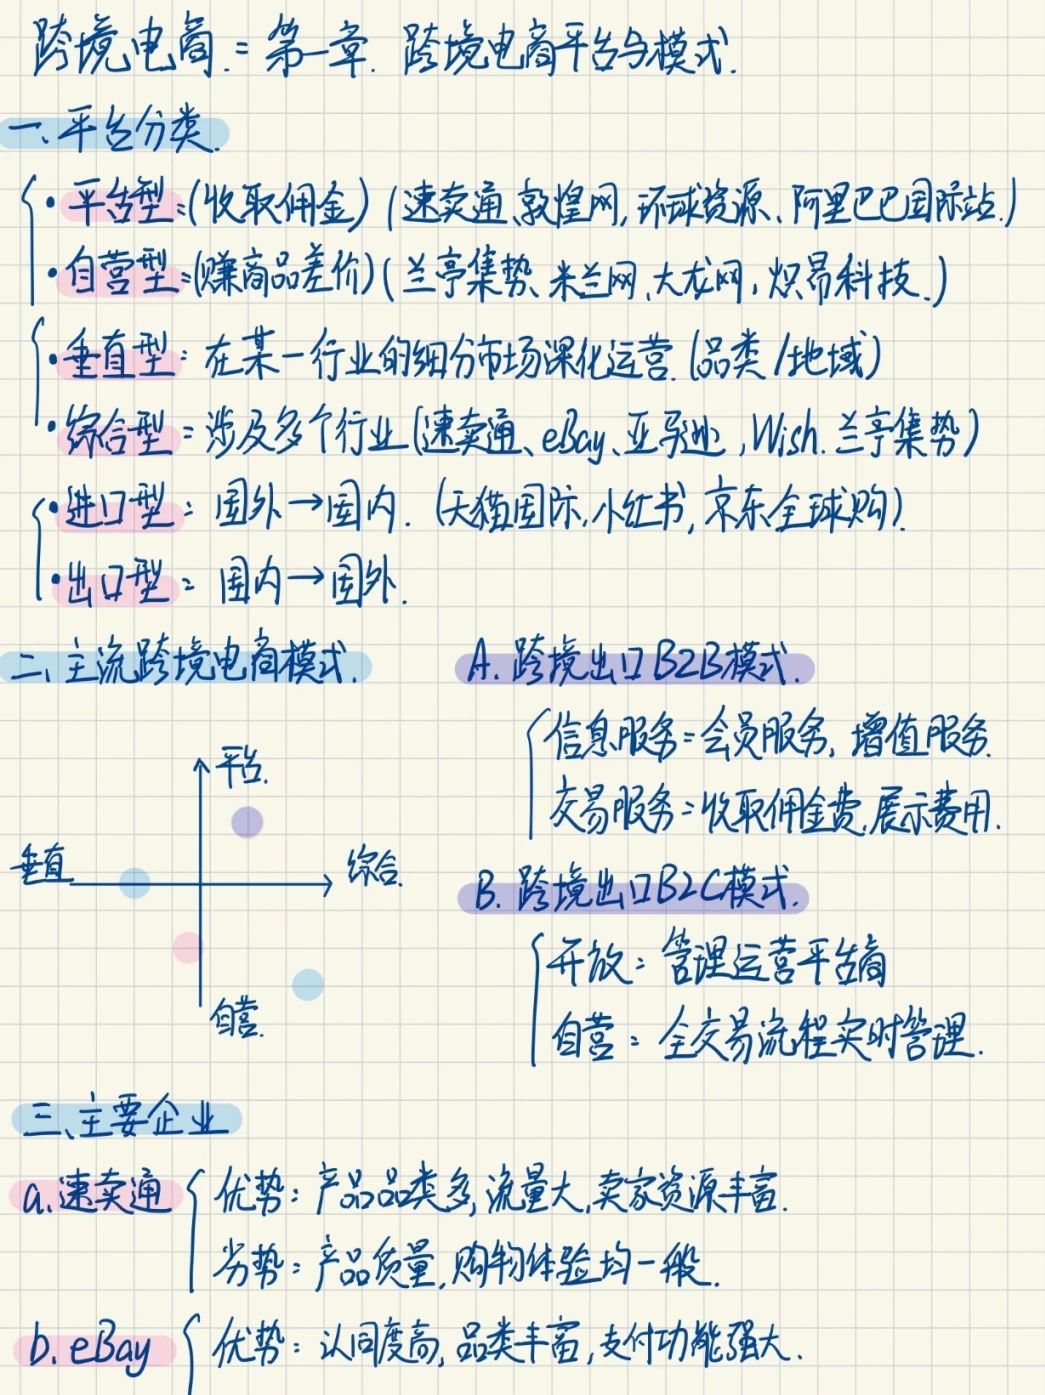 跨境电商:第一章.跨境电商平台与模式.
一、平台分类.
·平台型:(收取佣金)(速卖通、敦煌网,环球资源、阿里巴巴国际站.)
·自营型:(赚商品差价)(兰亭集势、米兰网、大龙网,炽昂科技.)
·垂直型:在某一行业的细分市场深化运营.(品类/地域)
·综合型:涉及多个行业(速卖通、eBay、亚马逊,Wish.兰亭集势)
·进口型:国外→国内.(天猫国际,小红书,京东全球购).
·出口型:国内→国外.
二、主流跨境电商模式.
平台.
垂直
综合.
自营.
A.跨境出口B2B模式.
信息服务:会员服务,增值服务.
交易服务:收取佣金费,展示费用.
B.跨境出口B2C模式.
开放:管理运营平台商
自营:全交易流程实时管理.
三、主要企业
a.速卖通
优势:产品品类多,流量大,卖家资源丰富.
劣势:产品质量,购物体验均一般.
b.eBay
优势:认同度高,品类丰富,支付功能强大.